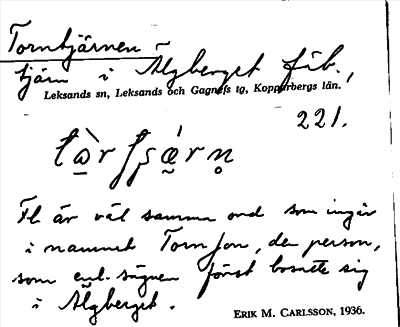 Torntjärnen
tjärn i Älgberget fäb.,
Leksands sn, Leksands och Gagnefs tg, Kopparbergs län.
221.
Fl. är väl samma ord som ingår
i namnet Tornjon, den person,
som enl. sägnen först bosatte sig
i Älgberget.
ERIK M. CARLSSON, 1936.